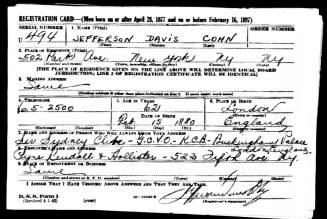 REGISTRATION CARD—(Men born on or after April 28, 1877 and on or before February 16, 1897)
SERIAL NUMBER 1. NAME (Print) ORDER NUMBER
U 494 JEFFERSON DAVIS COHN
(First) (Middle) (Last)
2. PLACE OF RESIDENCE (Print)
502 Park Ave. New York Ny Ny
(Number and street) (Town, township, village, or city) (County) (State)
[THE PLACE OF RESIDENCE GIVEN ON THE LINE ABOVE WILL DETERMINE LOCAL BOARD
JURISDICTION; LINE 2 OF REGISTRATION CERTIFICATE WILL BE IDENTICAL]
3. MAILING ADDRESS
Same
4. TELEPHONE 5. AGE IN YEARS 6. PLACE OF BIRTH
5-2500 62 London
DATE OF BIRTH (Town or county)
15 1880 England
(Mo.) (Day) (Yr.) (State or country)
7. NAME AND ADDRESS OF PERSON WHO WILL ALWAYS KNOW YOUR ADDRESS
Sir Sydney G.C.V.O. - K.C.B - Buckingham Palace
8. EMPLOYER'S NAME AND ADDRESS London
Kendall & Hollister - 523 Fifth Ave Ny
9. PLACE OF EMPLOYMENT OR BUSINESS
Same
(Number and street or R. F. D. number) (Town) (County) (State)
I AFFIRM THAT I HAVE VERIFIED ABOVE ANSWERS AND THAT THEY ARE TRUE.
D. S. S. Form 1
(Revised 4-1-42)